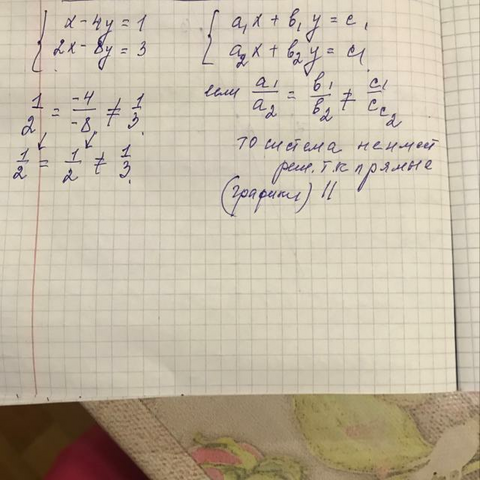 { x - 4y = 1
2x - 8y = 3
1/2 = -4/-8 ≠ 1/3
1/2 = 1/2 ≠ 1/3
{ a₁x + b₁y = c₁
a₂x + b₂y = c₁
если a₁/a₂ = b₁/b₂ ≠ c₁/c c₂
то система не имеет
реш, т.к прямые
(графики) ||